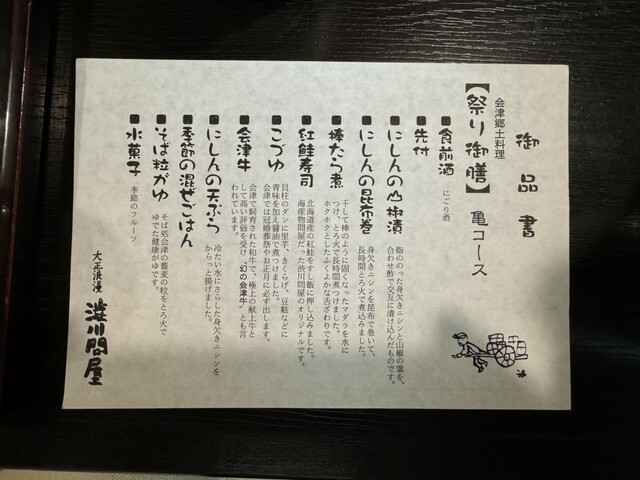 御品書
会津郷土料理
【祭り御膳】亀コース
■食前酒 にごり酒
■先付
■にしんの山椒漬
脂ののった身欠きニシンと山椒の葉を、
合わせ酢で交互に漬け込んだものです。
■にしんの昆布巻
身欠きニシンを昆布で巻いて、
長時間とろ火で煮込みました。
■棒たら煮
干して棒のように固くなったマダラを水に
つけ、とろ火で長時間煮つけました。
ホクホクとしたふくよかな舌ざわりです。
■紅鮭寿司
北海道産の紅鮭をすし飯に押し込みました。
海産物問屋だった渋川問屋のオリジナルです。
■こづゆ
貝柱のダシに里芋、きくらげ、豆麩などに
青味を加え醤油で煮つけました。
会津では冠婚葬祭やお正月に必ず出します。
■会津牛
会津で飼育された和牛で、極上の献上牛と
して高い評価を受け、“幻の会津牛”とも言
われています。
■にしんの天ぷら
冷たい水にさらした身欠きニシンを
からっと揚げました。
■季節の混ぜごはん
■そば粒がゆ
そば処会津の蕎麦の粒をとろ火で
ゆでた健康がゆです。
■水菓子 季節のフルーツ
大正浪漫
渋川問屋